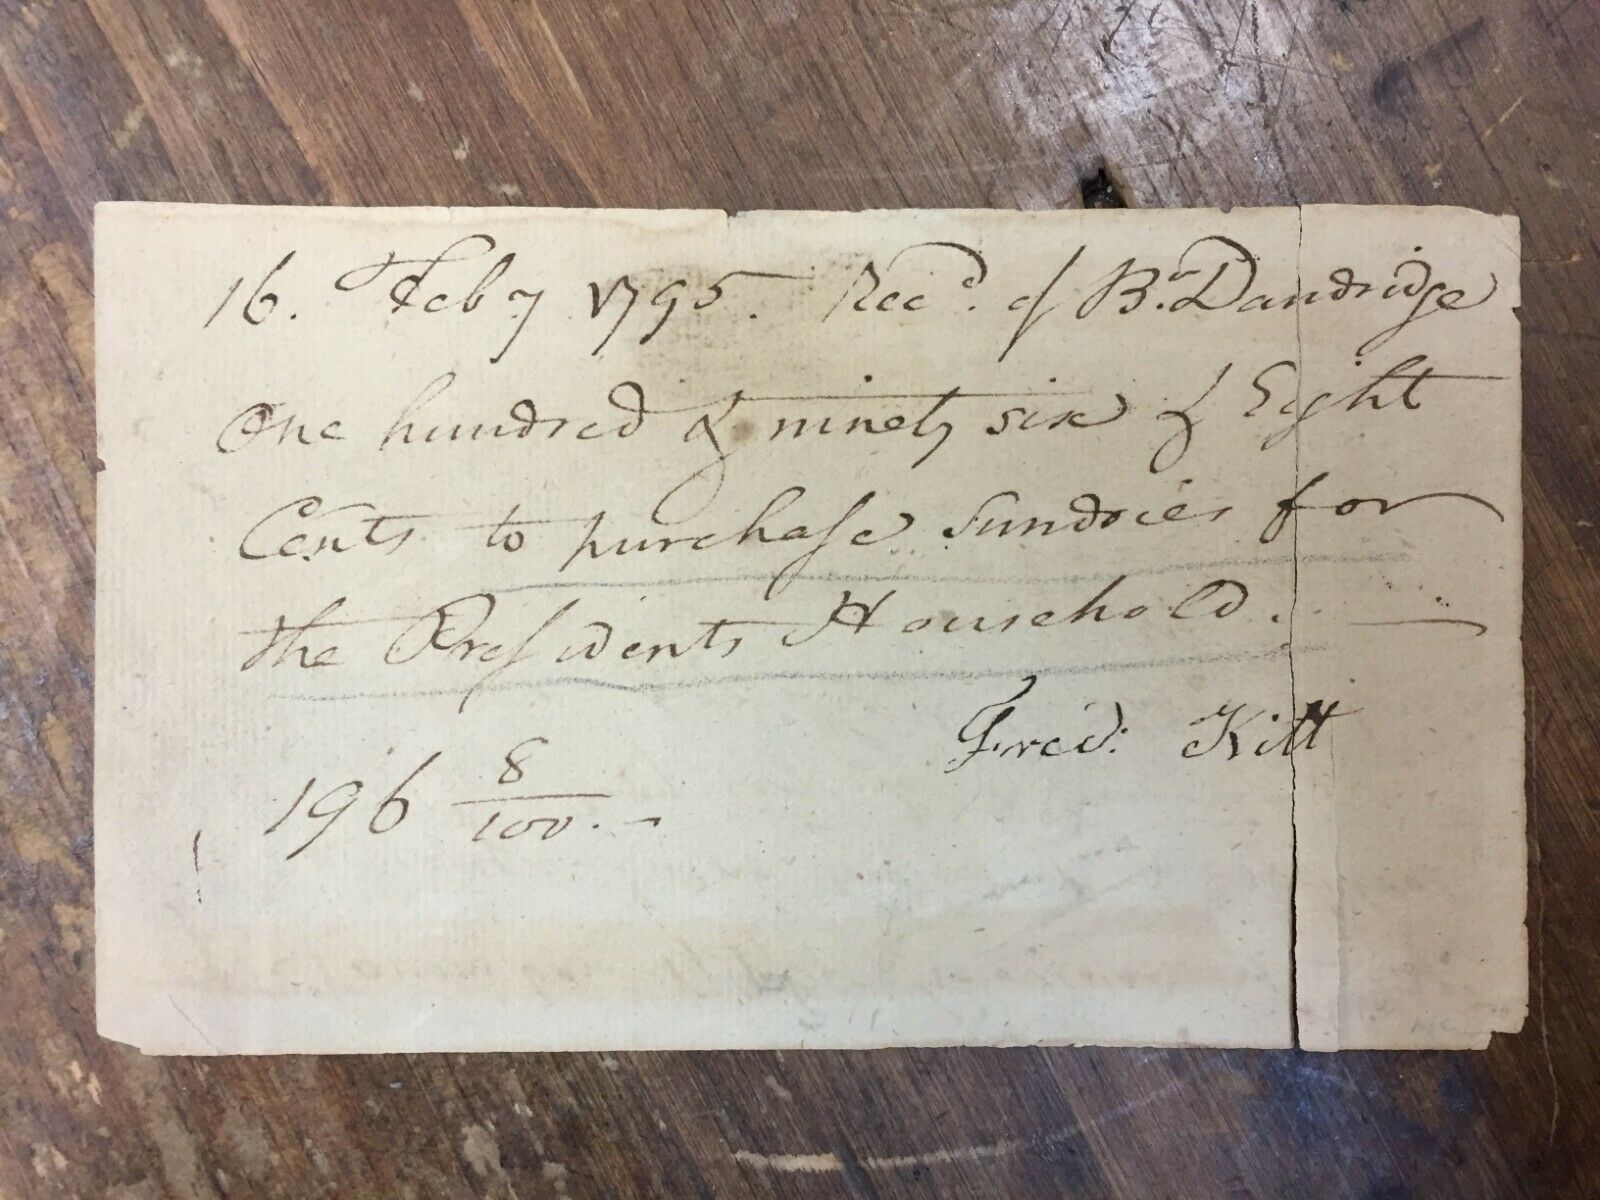 16. Feby 1795. Recd. of Br. Dandridge
One hundred & ninety six & Eight
Cents to purchase sundries for
the Presidents Household.
Fred: Kitt
196 8/100.